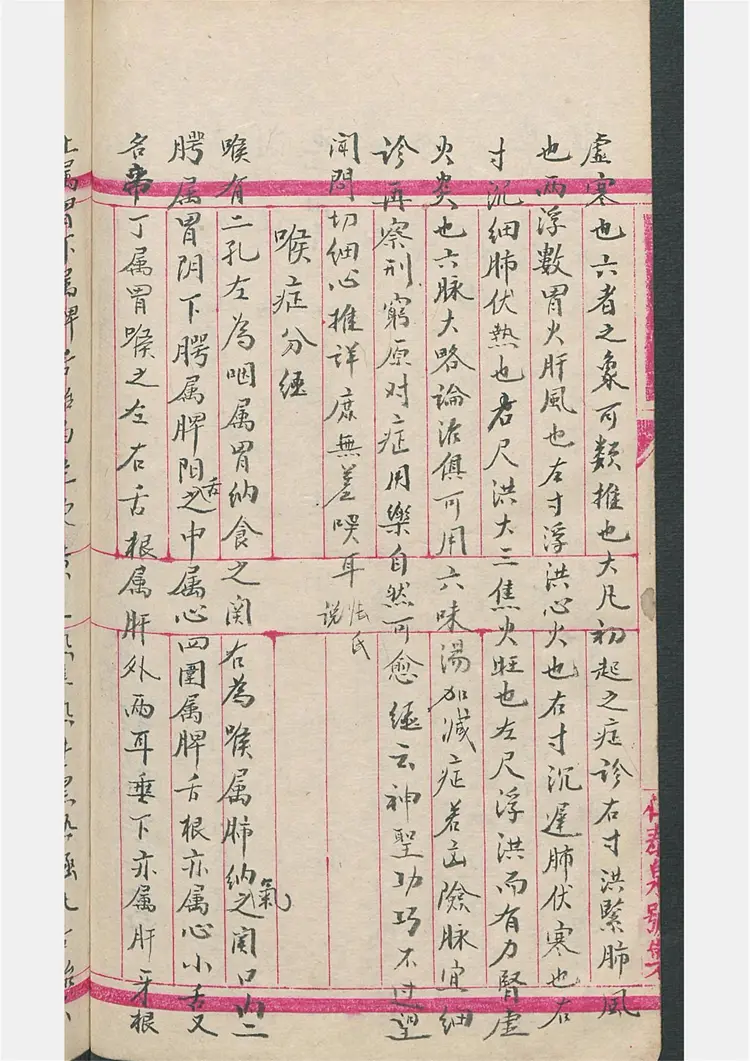 虚寒也六者之象可類推也大凡初起之症診右寸洪緊肺風
也两浮數胃火肝風也左寸浮洪心火也右寸沉遲肺伏寒也右
寸沉细肺伏熱也右尺洪大三焦火旺也左尺浮洪而有力腎虚
火炎也六脉大略論治俱可用六味湯加减症若凶險脉宜细
診再察刑窮原对症用樂自然可愈經云神聖功巧不过望
闻問切细心推詳庶無差唉耳 张氏说
喉症分經
喉有二孔左為咽属胃纳食之関右為喉属肺纳氣之関口山二
腭属胃阴下腭属脾阳舌之中属心四圍属脾舌根亦属心小舌又
名帝丁属胃喉之左右舌根属肝外两耳垂下亦属肝牙根